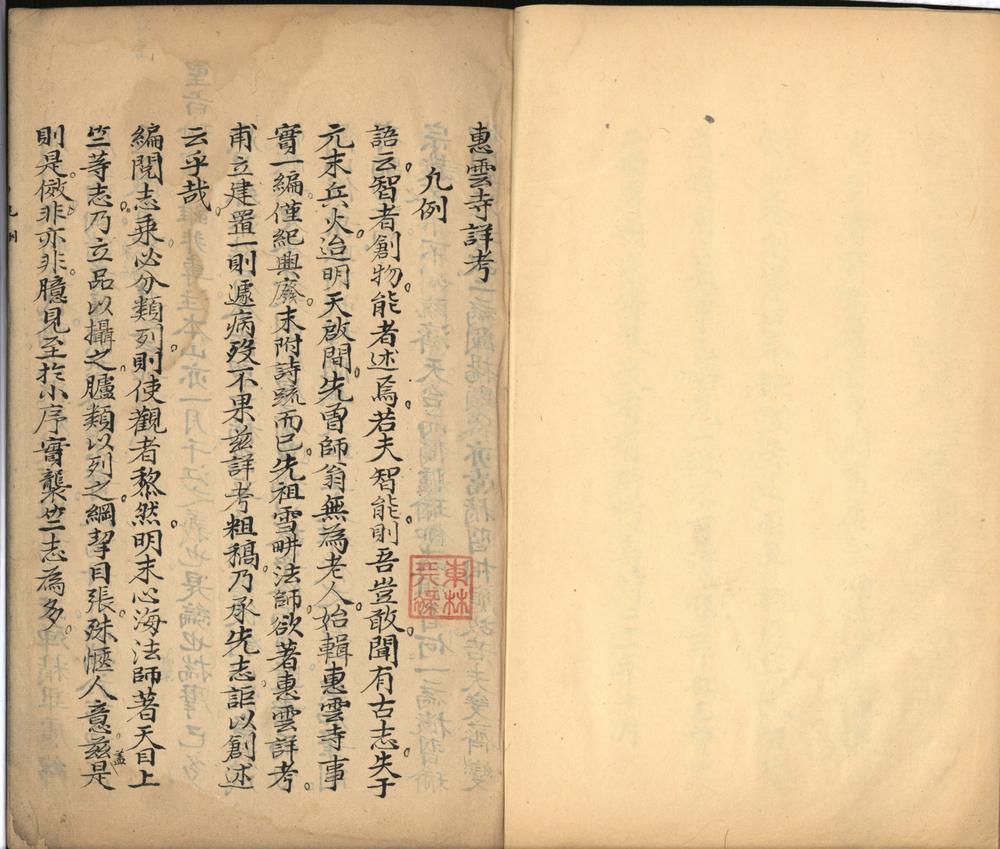 惠雲寺詳考
凡例
語云智者創物能者述焉若夫智能則吾豈敢聞有古志失于
元末兵火迨明天啟間先曾師翁無為老人始輯惠雲寺事
實一編僅紀興廢末附詩疏而已先祖雪畊法師欲著惠雲詳考
甫立建置一則遽病歿不果茲詳考粗稿乃承先志詎以創述
云乎哉
編閱志乘必分類列則使觀者黎然明末心海法師著天目上
竺等志乃立品以攝之臚類以列之綱挈目張殊愜人意茲蓋是
則是倣非亦非臆見至於小序實襲竺志為多
東林
凡例